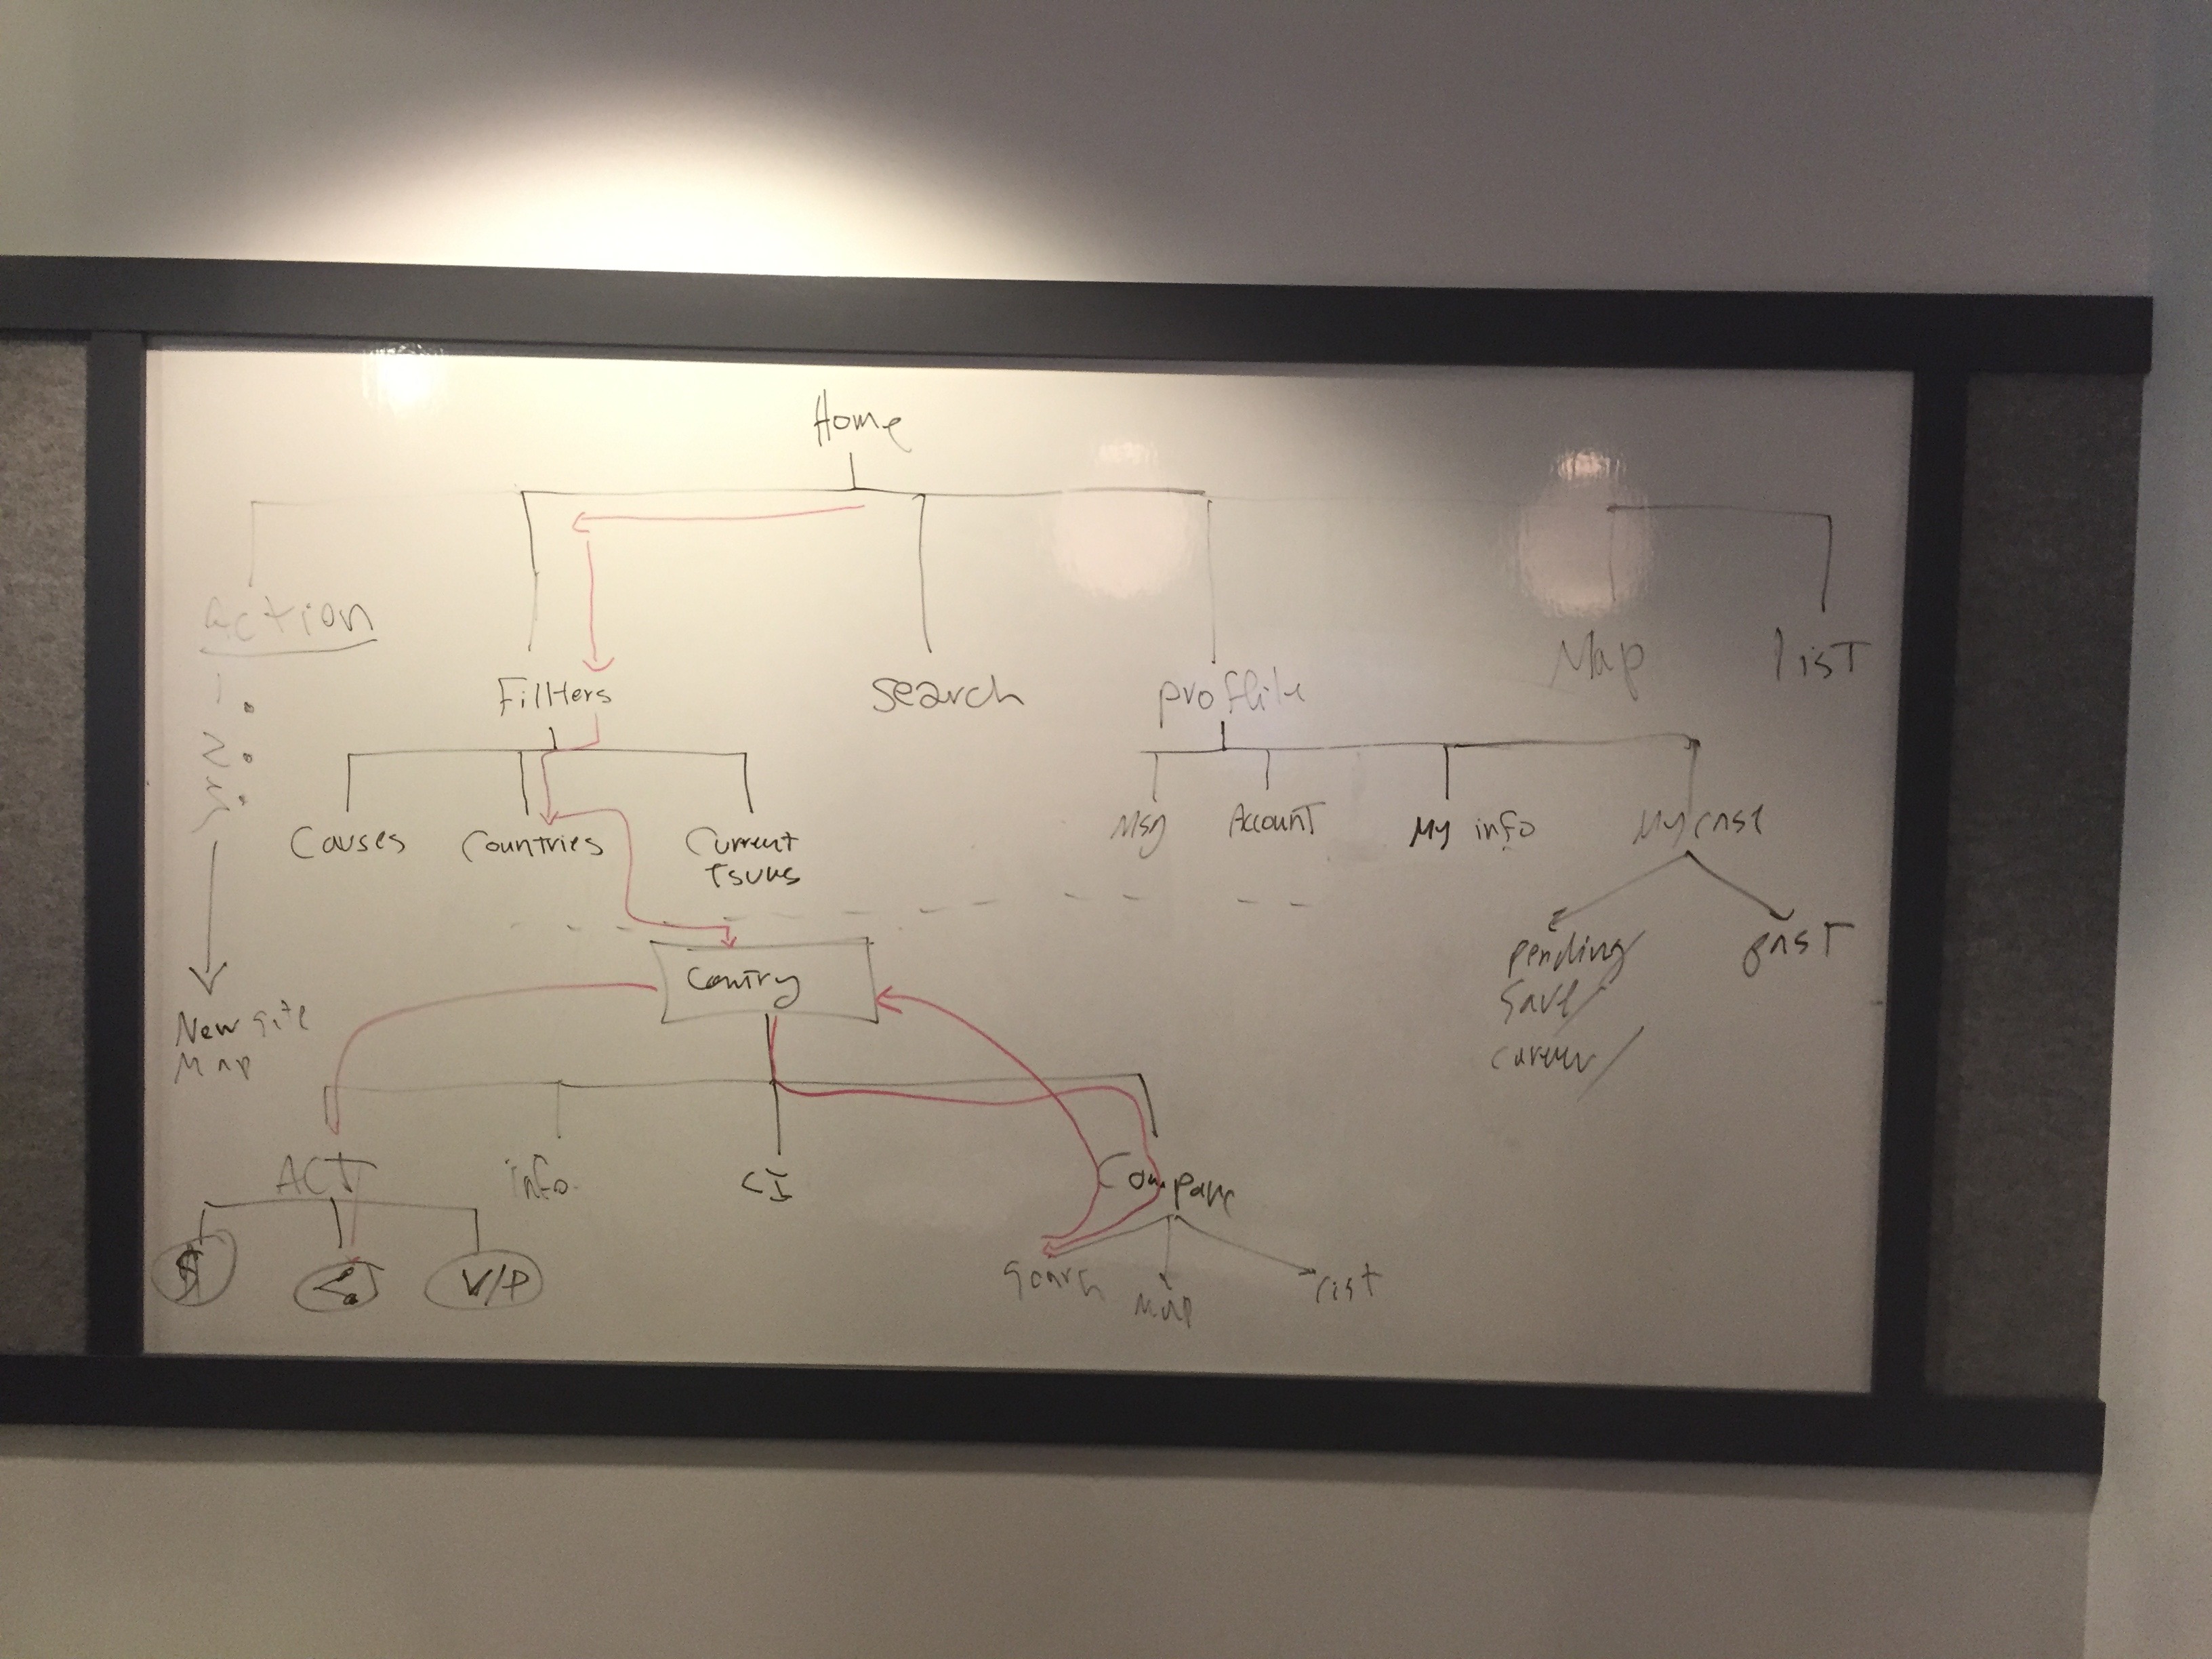 Home
action
Fillters
search
proflile
Map
list
Causes
Countries
Current
Isuns
Msg
Account
My info
My case
pending
save
past
Contry
New site
Map
ACT
info
CI
Compare
$
V/P
Search
Map
list